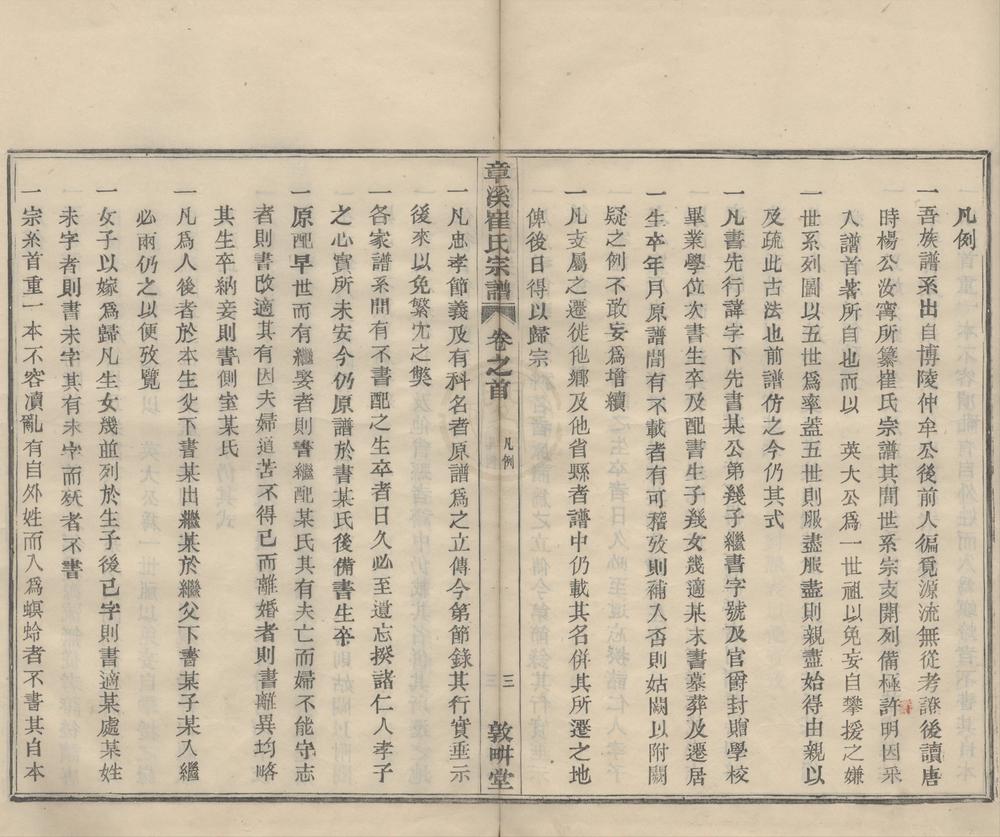 凡例
一吾族譜系出自博陵仲牟公後前人徧覓源流無從考證後讀唐
時楊公汝寗所纂崔氏宗譜其間世系宗支開列備極許明因采
入譜首著所自也而以　英大公爲一世祖以免妄自攀援之嫌
一世系列圖以五世爲率蓋五世則服盡服盡則親盡始得由親以
及疏此古法也前譜仿之今仍其式
一凡書先行諱字下先書某公第幾子繼書字號及官爵封贈學校
畢業學位次書生卒及配書生子幾女幾適某末書墓葬及遷居
一生卒年月原譜間有不載者有可稽攷則補入否則姑闕以附闕
疑之例不敢妄爲增續
一凡支屬之遷徙他鄉及他省縣者譜中仍載其名併其所遷之地
俾後日得以歸宗
章溪崔氏宗譜　卷之首　凡例　三　敦畊堂
一凡忠孝節義及有科名者原譜爲之立傳今第節錄其行實垂示
後來以免繁冗之獘
一各家譜系間有不書配之生卒者日久必至遺忘揆諸仁人孝子
之心實所未安今仍原譜於書某氏後備書生卒
一原配早世而有繼娶者則書繼配某氏其有夫亡而婦不能守志
者則書改適其有因夫婦道苦不得已而離婚者則書離異均略
其生卒納妾則書側室某氏
一凡爲人後者於本生父下書某出繼某於繼父下書某子某入繼
必兩仍之以便攷覽
一女子以嫁爲歸凡生女幾並列於生子後已字則書適某處某姓
未字者則書未字其有未字而殀者不書
一宗系首重一本不容瀆亂有自外姓而入爲螟蛉者不書其自本